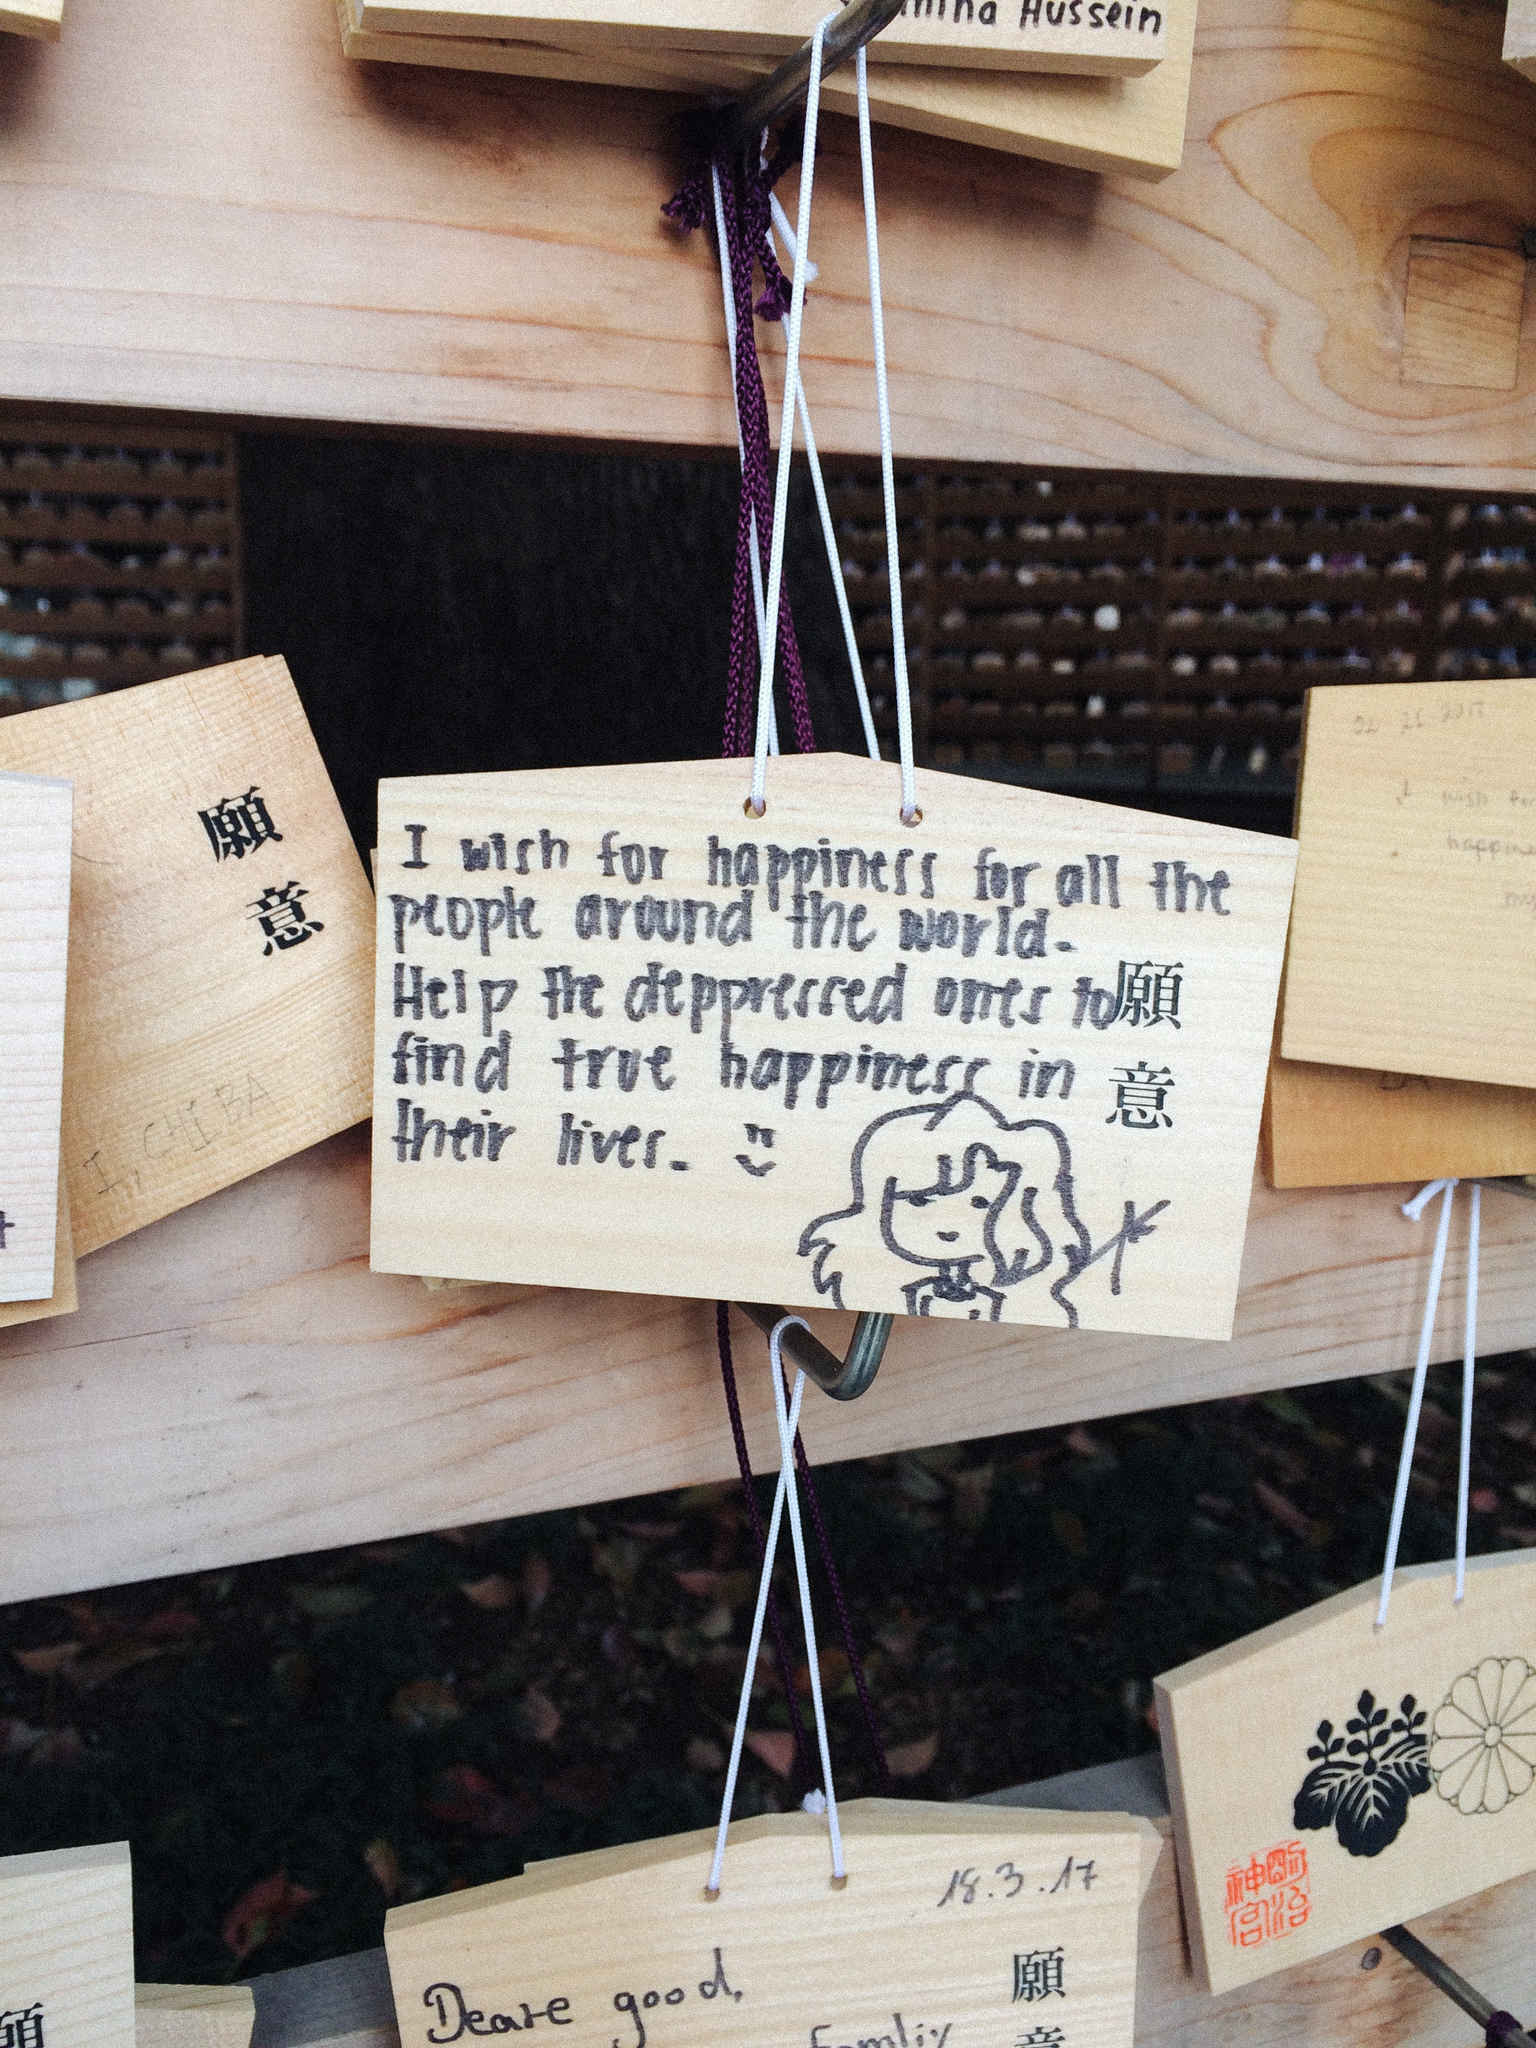 Hussein
願
意
I, CHIBA
I wish for happiness for all the
people around the world.
Help the deppressed ones to
find true happiness in
their lives.
願
意
18.3.17
Deare good,
Famliy
願
意
願
明治
神宮